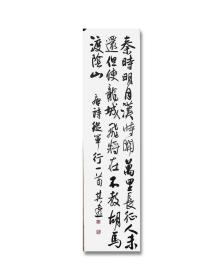 秦時明月漢時關萬里長征人未
還但使龍城飛將在不教胡馬
渡陰山 唐詩從軍行一首